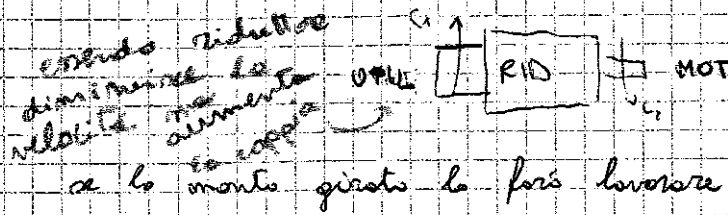 essendo riduttore
diminuisce la
velocità ma
aumenta
la coppia
C₁
UTILI
RID
MOT
C₂
se lo monto girato lo farò lavorare